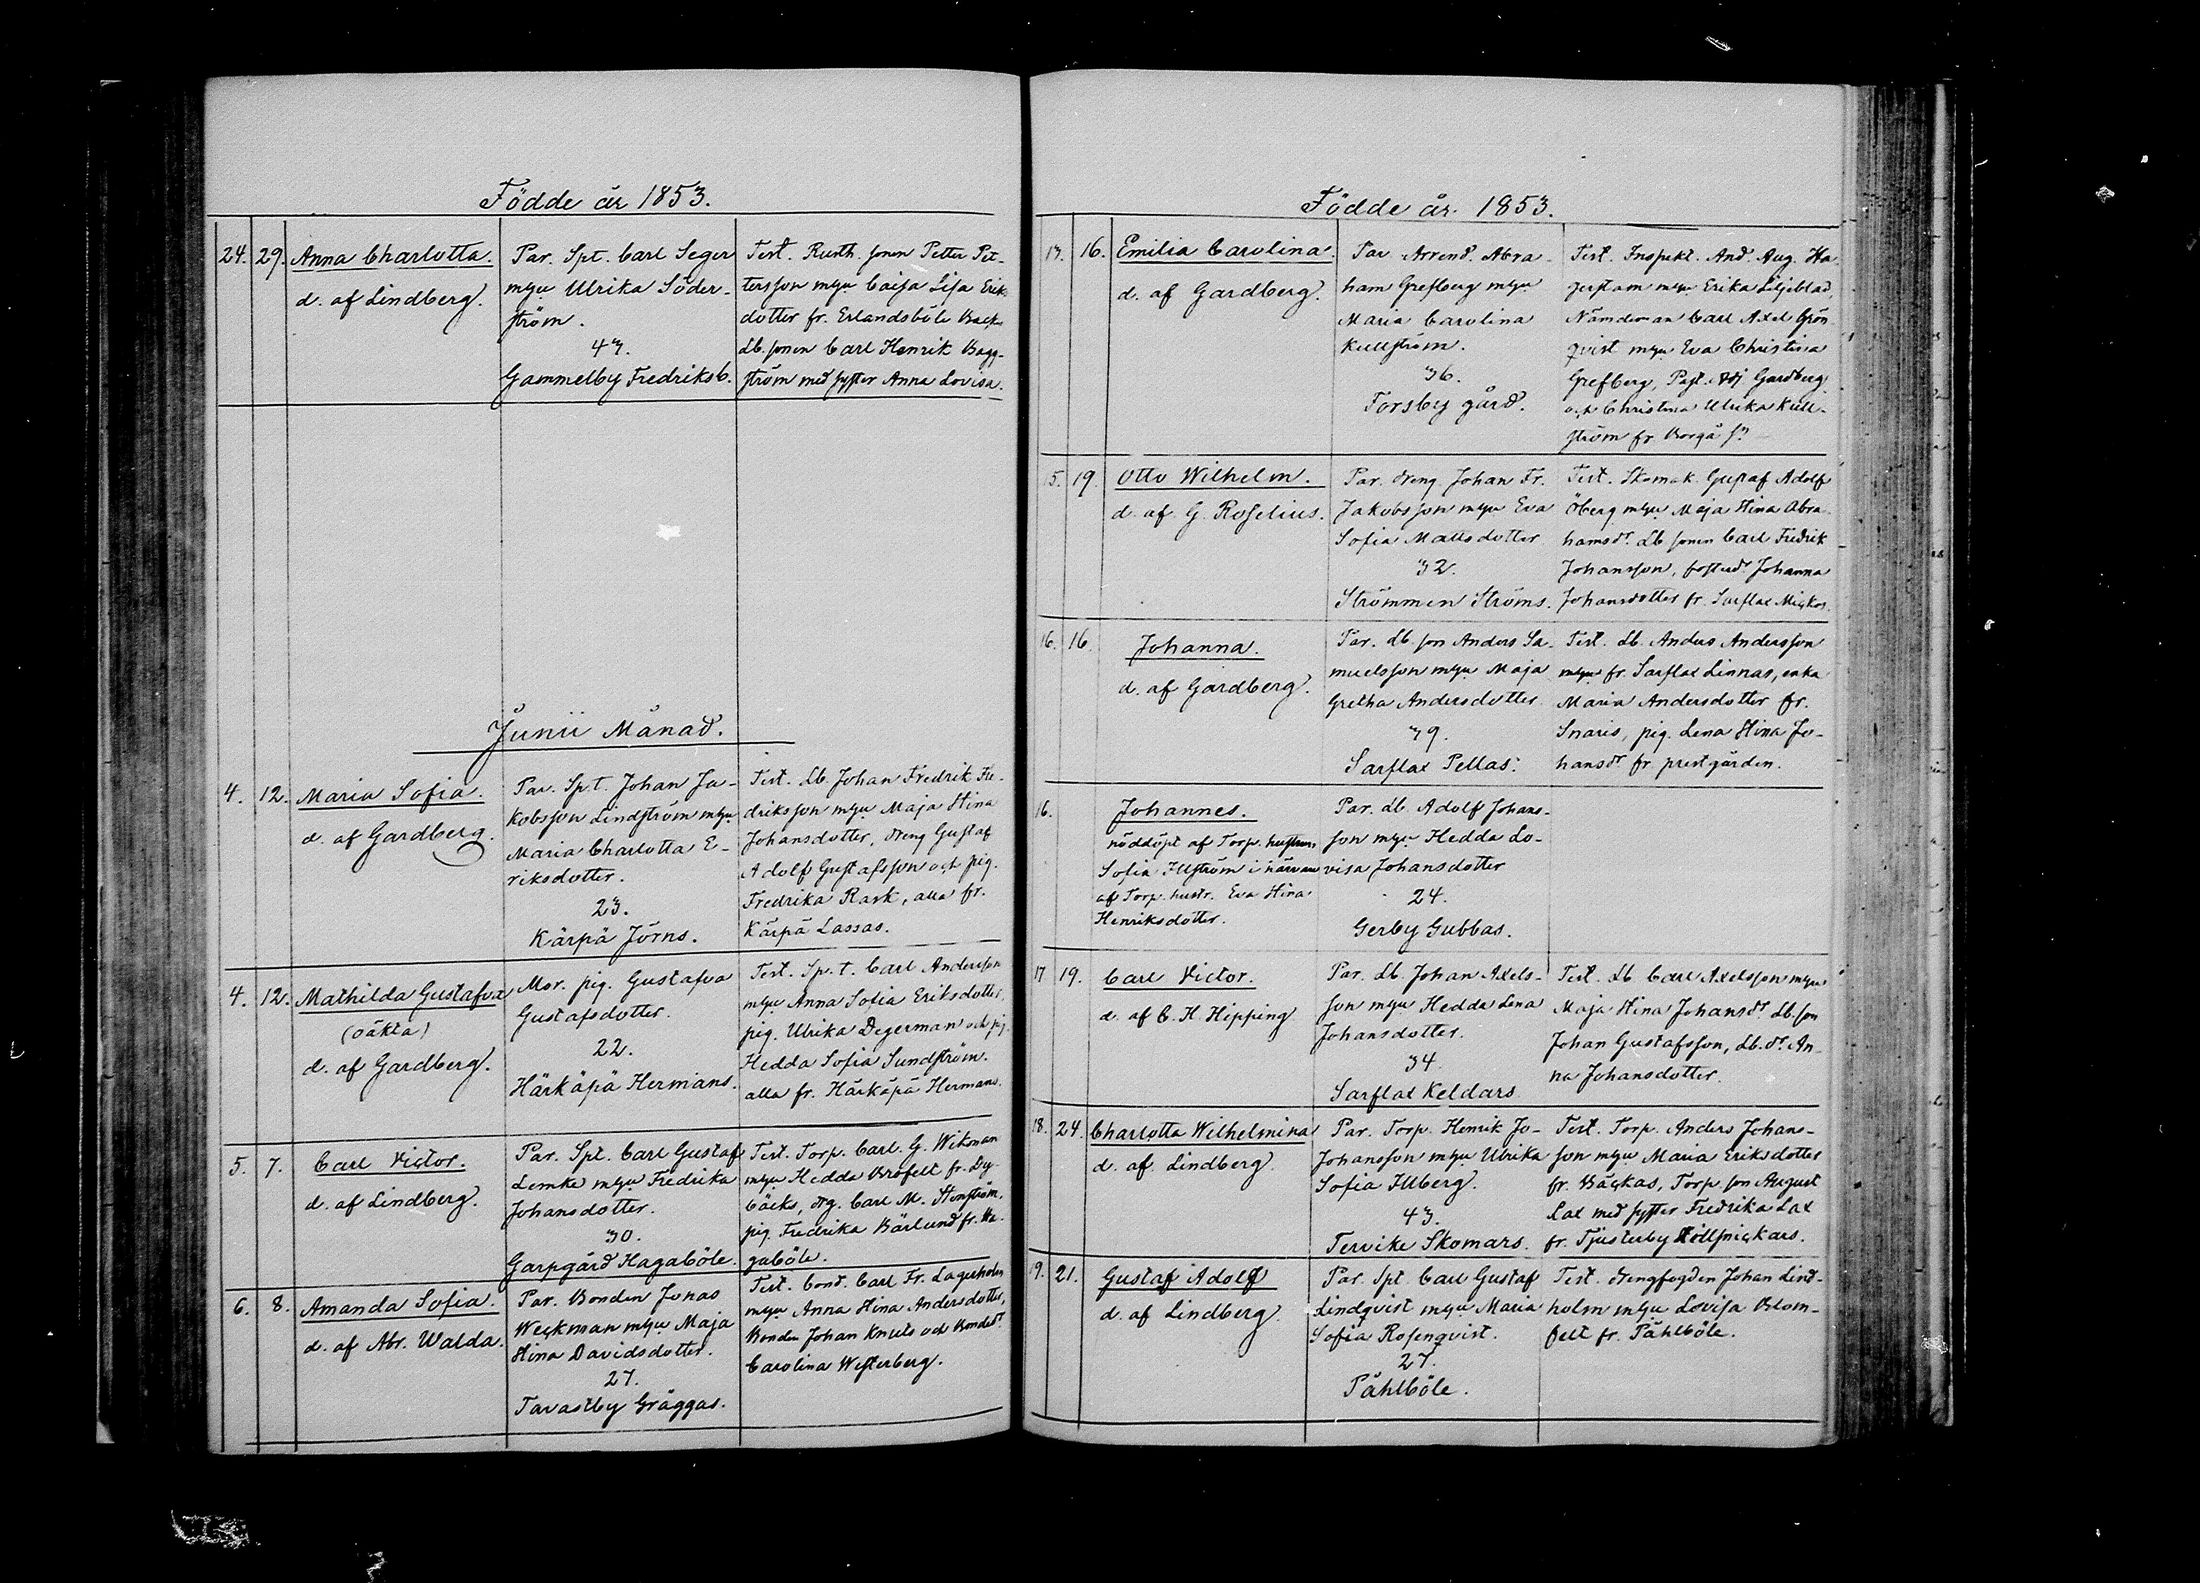 Födde år 1853.
24. 29. Anna Charlotta.
d. af Lindberg.
Par. Spt. Carl Seger
m. hu Ulrika Söder-
ström.
43.
Gammelby Fredriksb.
Test. Rusth. sonen Petter Pet-
tersson m. hu Caisa Lisa Eriks
dotter fr. Erlandsböle Backas
Lb. sonen Carl Henrik Bagg-
ström med syster Anna Lovisa.
Junii Månad.
4. 12. Maria Sofia.
d. af Gardberg.
Par. Sp.t. Johan Ja-
kobsson Lindström m. hu
Maria Charlotta E-
riksdotter.
23.
Kärpä Jörns.
Test. Lb. Johan Fredrik Fre-
driksson m. hu Maja Stina
Johansdotter, dreng Gustaf
Adolf Gustafsson och pig.
Fredrika Rask, alla fr.
Kärpä Lassas.
4. 12. Mathilda Gustafva
(oäkta)
d. af Gardberg.
Mor. pig. Gustafva
Gustafsdotter.
22.
Härkäpä Hermans.
Test. Sp.t. Carl Andersson
m. hu Anna Sofia Eriksdotter,
pig. Ulrika Degerman och pig.
Hedda Sofia Sundström.
alla fr. Härkäpä Hermans.
5. 7. Carl Victor.
d. af Lindberg.
Par. Spt. Carl Gustaf
Lemke m. hu Fredrika
Johansdotter.
30.
Garpgård Hagaböle.
Test. Torp. Carl. G. Wikman
m. hu Hedda Brofelt fr. Dy-
bäcks, drg. Carl M. Stenström,
pig. Fredrika Bärlund fr. Ha-
gaböle.
6. 8. Amanda Sofia.
d. af Abr. Walda.
Par. Bonden Jonas
Weckman m. hu Maja
Stina Davidsdotter.
27.
Tavastby Gräggas.
Test. Cond. Carl Fr. Lagerholm
m. hu Anna Stina Andersdotter,
Bonden Johan Knuts och Bondedr
Carolina Westerberg.
Födde år. 1853.
13. 16. Emilia Carolina.
d. af Gardberg.
Par Arrend. Abra-
ham Grefberg m. hu
Maria Carolina
Kullström.
36.
Forsby gård.
Test. Inspekt. And. Aug. Ha-
gerstam m. hu Erika Liljeblad,
Nämdeman Carl Axel Grön-
qvist m. hu Eva Christina
Grefberg, Past. Adj Gardberg
och Christina Ulrika Kull-
ström fr Borgå sn
15. 19. Otto Wilhelm.
d. af G. Roselius.
Par. dreng Johan Fr.
Jakobsson m. hu Eva
Sofia Mattsdotter
32.
Strömmen Ströms.
Test. Skomak. Gustaf Adolf
Öberg m. hu Maja Stina Abra-
hamsdr. Lb. sonen Carl Fredrik
Johansson, fosterdr. Johanna
Johansdotter fr. Sarflax Mickos.
16. 16. Johanna.
d. af Gardberg.
Par. Lb. son Anders Sa-
muelsson m. hu Maja
Gretha Andersdotter.
39.
Sarflax Pellas.
Test. Lb. Anders Andersson
m. hu fr. Sarflax Linnas, enka
Maria Andersdotter fr.
Snaris, pig. Lena Stina Jo-
hansdr fr. prestgården.
16. Johannes.
nöddöpt af Torp. hustrun
Sofia Illström i närvaro
af Torp. hustr. Eva Stina
Henriksdotter.
Par. Lb. Adolf Johans-
son m. hu Hedda Lo-
visa Johansdotter
24.
Gerby Gubbas.
17 19. Carl Victor.
d. af C. H. Hipping
Par. Lb. Johan Axels-
son m. hu Hedda Lena
Johansdotter.
34.
Sarflax Keldars
Test. Lb. Carl Axelsson m. hu
Maja Stina Johansdr Lb. son
Johan Gustafsson, Lb. dr. An-
na Johansdotter.
18. 24. Charlotta Wilhelmina
d. af Lindberg.
Par. Torp. Henrik Jo-
Johansson m. hu Ulrika
Sofia Illberg.
43.
Tervike Skomars.
Test. Torp. Anders Johans-
son m. hu Maria Eriksdotter
fr. Bäckas, Torp. son August
Lax med syster Fredrika Lax
fr. Tjusterby Tillsnickars.
19. 21. Gustaf Adolf
d. af Lindberg.
Par. Spt Carl Gustaf
Lindqvist m. hu Maria
Sofia Rosenqvist.
27.
Påhlböle.
Test. drengfogden Johan Lind-
holm m. hu Lovisa Blom-
felt fr. Påhlböle.